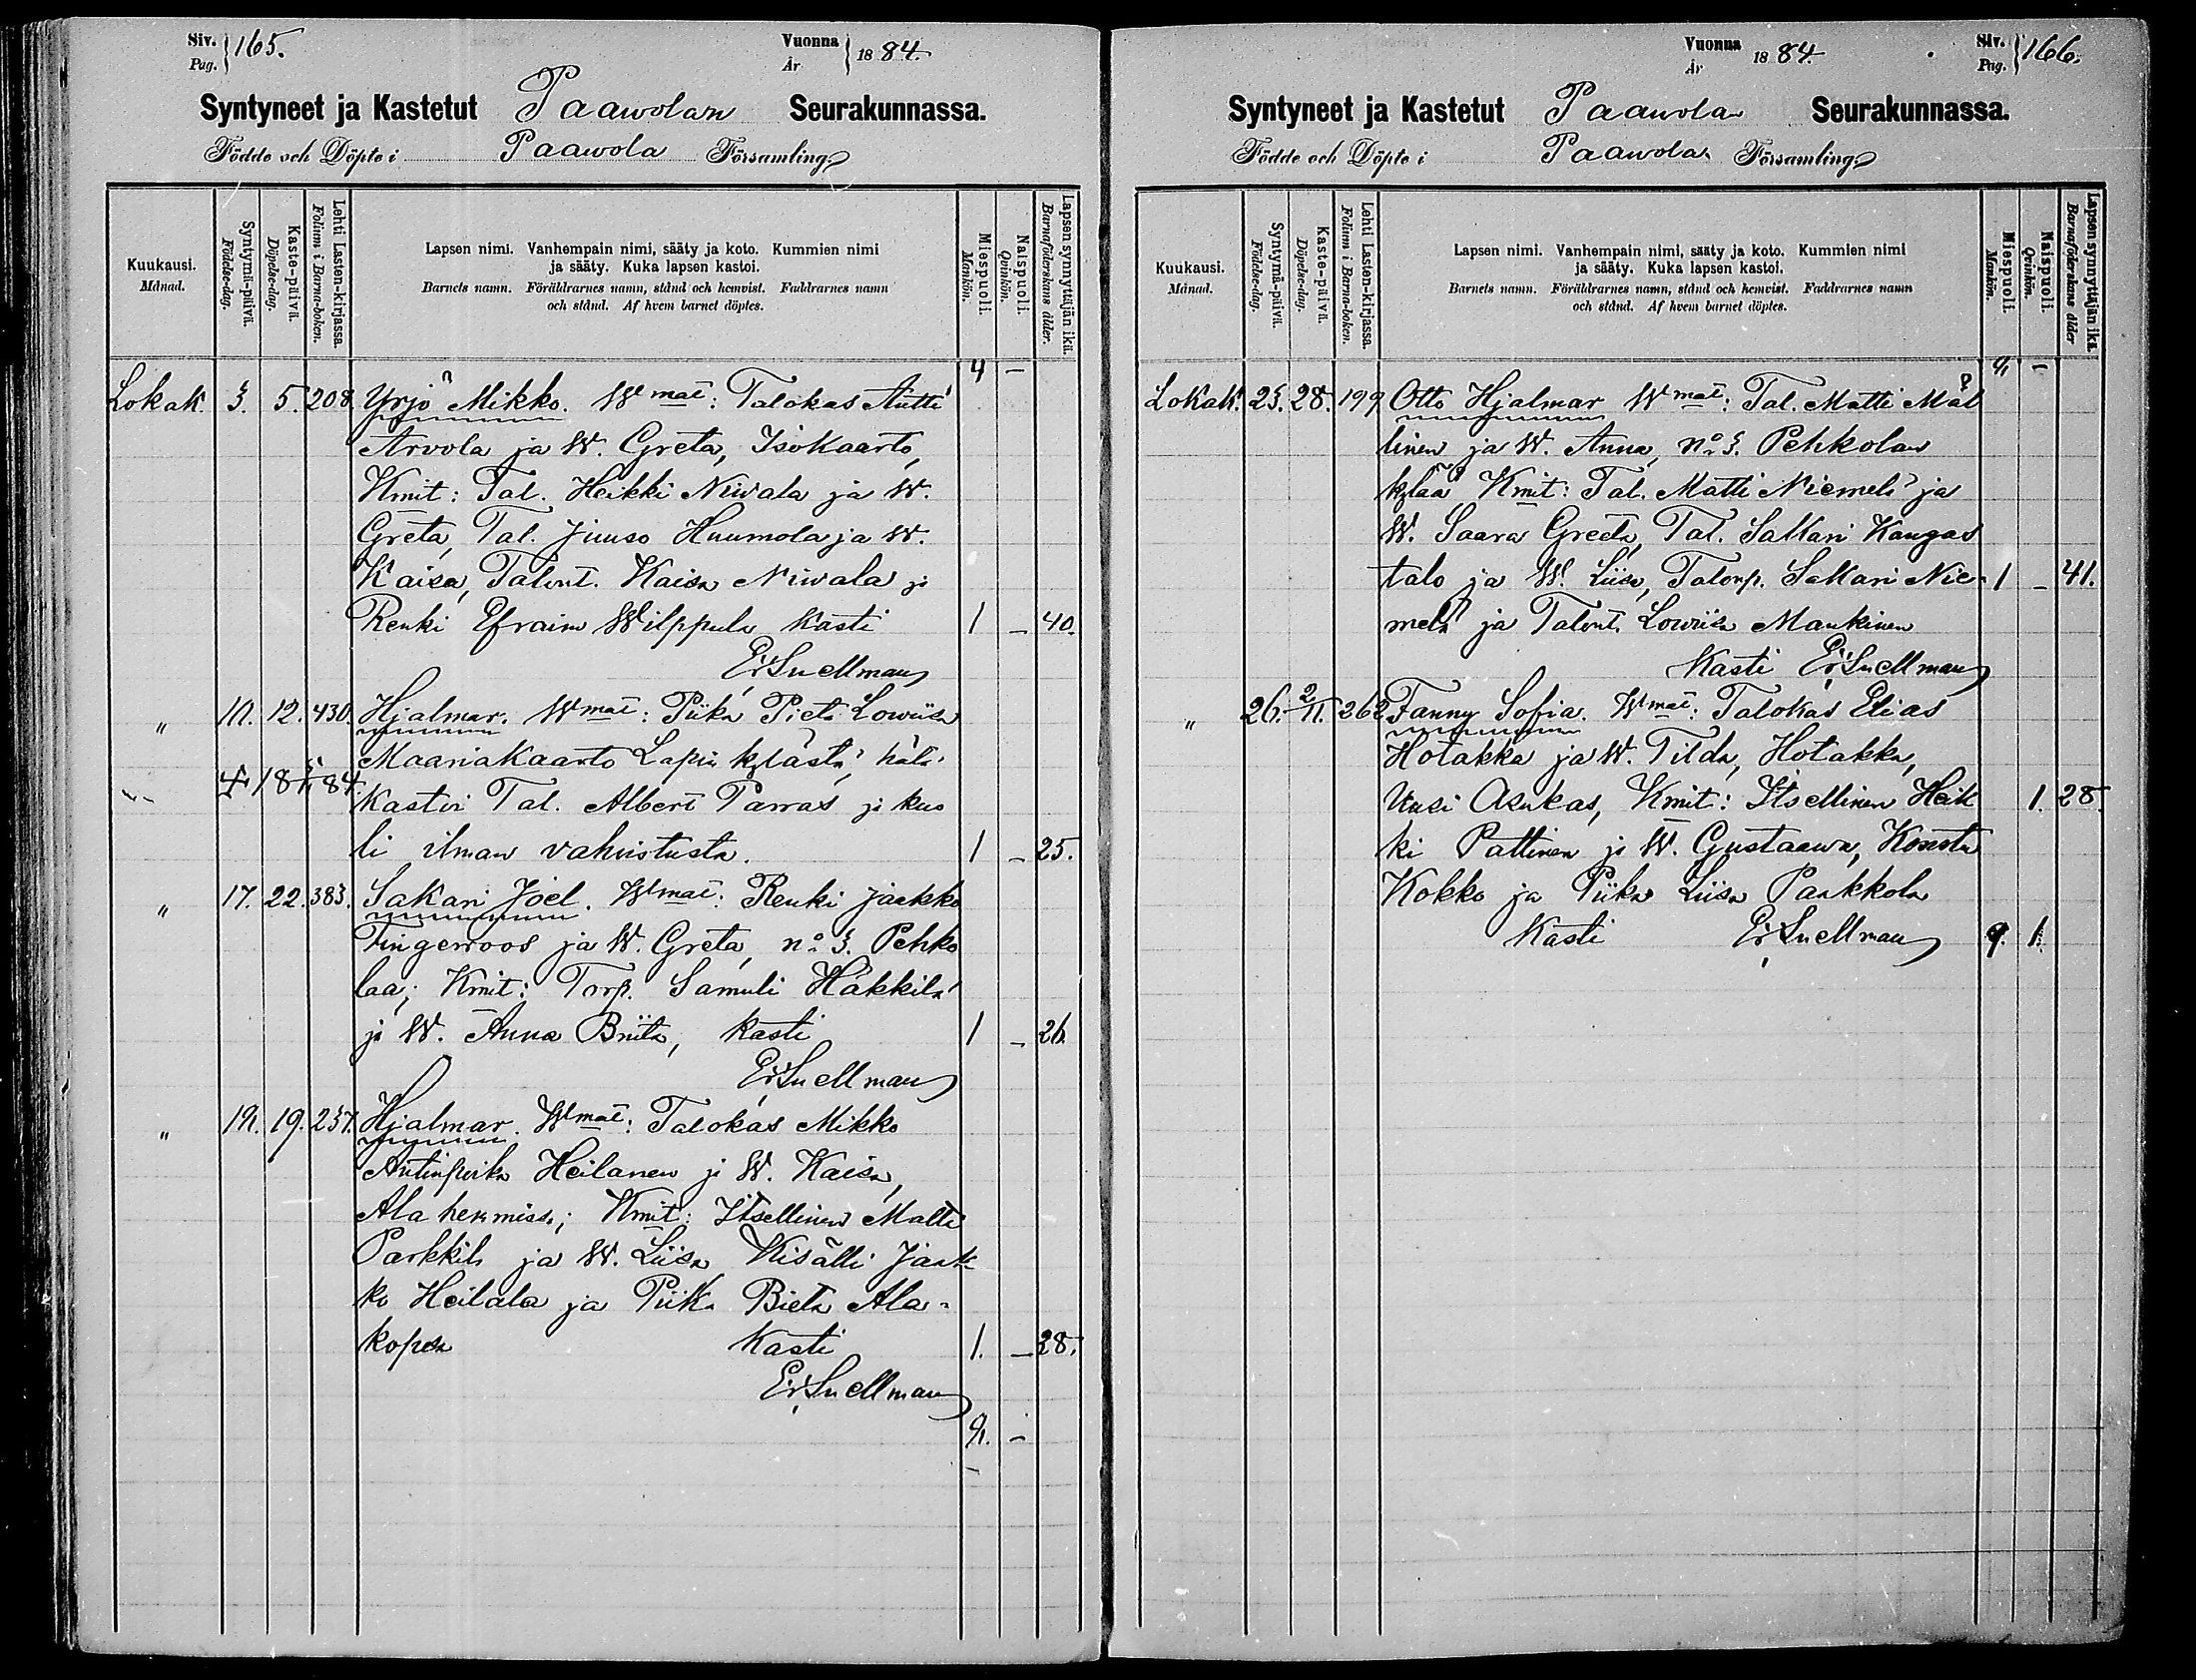 Siv. Pag. 165.
Vuonna År 1884.
Syntyneet ja Kastetut Paawolan Seurakunnassa.
Födde och Döpte i Paawola Församling
Kuukausi. Månad.
Syntymä-päivä. Födelse-dag.
Kaste-päivä. Döpelse-dag.
Lehti Lasten-kirjassa. Folium i Barna-boken.
Lapsen nimi. Vanhempain nimi, sääty ja koto. Kummien nimi
ja sääty. Kuka lapsen kastoi.
Barnets namn. Föräldrarnes namn, stånd och hemvist. Faddrarnes namn
och stånd. Af hvem barnet döptes.
Miespuoli. Mankön.
Naispuoli. Qvinkön.
Lapsen synnyttäjän ikä. Barnaföderskans ålder.
4 –
Lokak. 3. 5. 208. Yrjö Mikko. Wmat: Talokas Antti
Arvola ja W. Greta, Isokaarto,
Kmit: Tal. Heikki Niwala ja W.
Greta, Tal. Juuso Huumola ja W.
Kaisa, Talont. Kaisa Niwala ja
Renki Efraim Wilppula Kasti 1 – 40.
Er. Snellman
" 10. 12. 430. Hjalmar. Wmat: Piika Pieta Lowiisa
Maariakaarto Lapin kylästä, hätä
kastoi Tal. Albert Parras ja kuo
li ilman vahvistusta. 1 – 25.
" 17. 22. 383. Sakari Joel. Wmat: Renki Jaakko
Fingerroos ja W. Greta, no 3. Pehko
laa; Kmit: Torp. Samuli Häkkilä
ja W. Anna Briita, Kasti 1 – 26.
Er. Snellman
" 19. 19. 237. Hjalmar. Wmat: Talokas Mikko
Antinpoika Heilanen ja W. Kaisa,
Kmit: Itsellinen Matti
Parkkila ja W. Liisa, Kisälli Jaak
ko Heilala ja Piika Bieta Ala-
kopsa Kasti 1. – 28.
Er. Snellman
9. –
Vuonna År 1884.
Siv. Pag. 166.
Syntyneet ja Kastetut Paawolan Seurakunnassa.
Födde och Döpte i Paawola Församling
Kuukausi. Månad.
Syntymä-päivä. Födelse-dag.
Kaste-päivä. Döpelse-dag.
Lehti Lasten-kirjassa. Folium i Barna-boken.
Lapsen nimi. Vanhempain nimi, sääty ja koto. Kummien nimi
ja sääty. Kuka lapsen kastoi.
Barnets namn. Föräldrarnes namn, stånd och hemvist. Faddrarnes namn
och stånd. Af hvem barnet döptes.
Miespuoli. Mankön.
Naispuoli. Qvinkön.
Lapsen synnyttäjän ikä. Barnaföderskans ålder
9 –
Lokak. 23. 28. 199 Otto Hjalmar Wmat: Tal. Matti Mäl
linen ja W. Anna, no 3. Pehkolan
kylää Kmit: Tal. Matti Niemelä ja
W. Saara Greeta, Tal. Sakari Kangas
talo ja W. Liisa, Talonp. Sakari Nie- 1 – 41.
melä ja Talont. Lowiisa Mankinen
Kasti Er. Snellman
" 26. 2/11. 262 Fanny Sofia. Wmat: Talokas Elias
Hotakka ja W. Tilda, Hotakka,
Uusi Asukas, Kmit: Itsellinen Heik 1. 28.
ki Pattinen ja W. Gustaawa, Kousta
Kokko ja Piika Liisa Paakkola
Kasti Er. Snellman 9. 1.